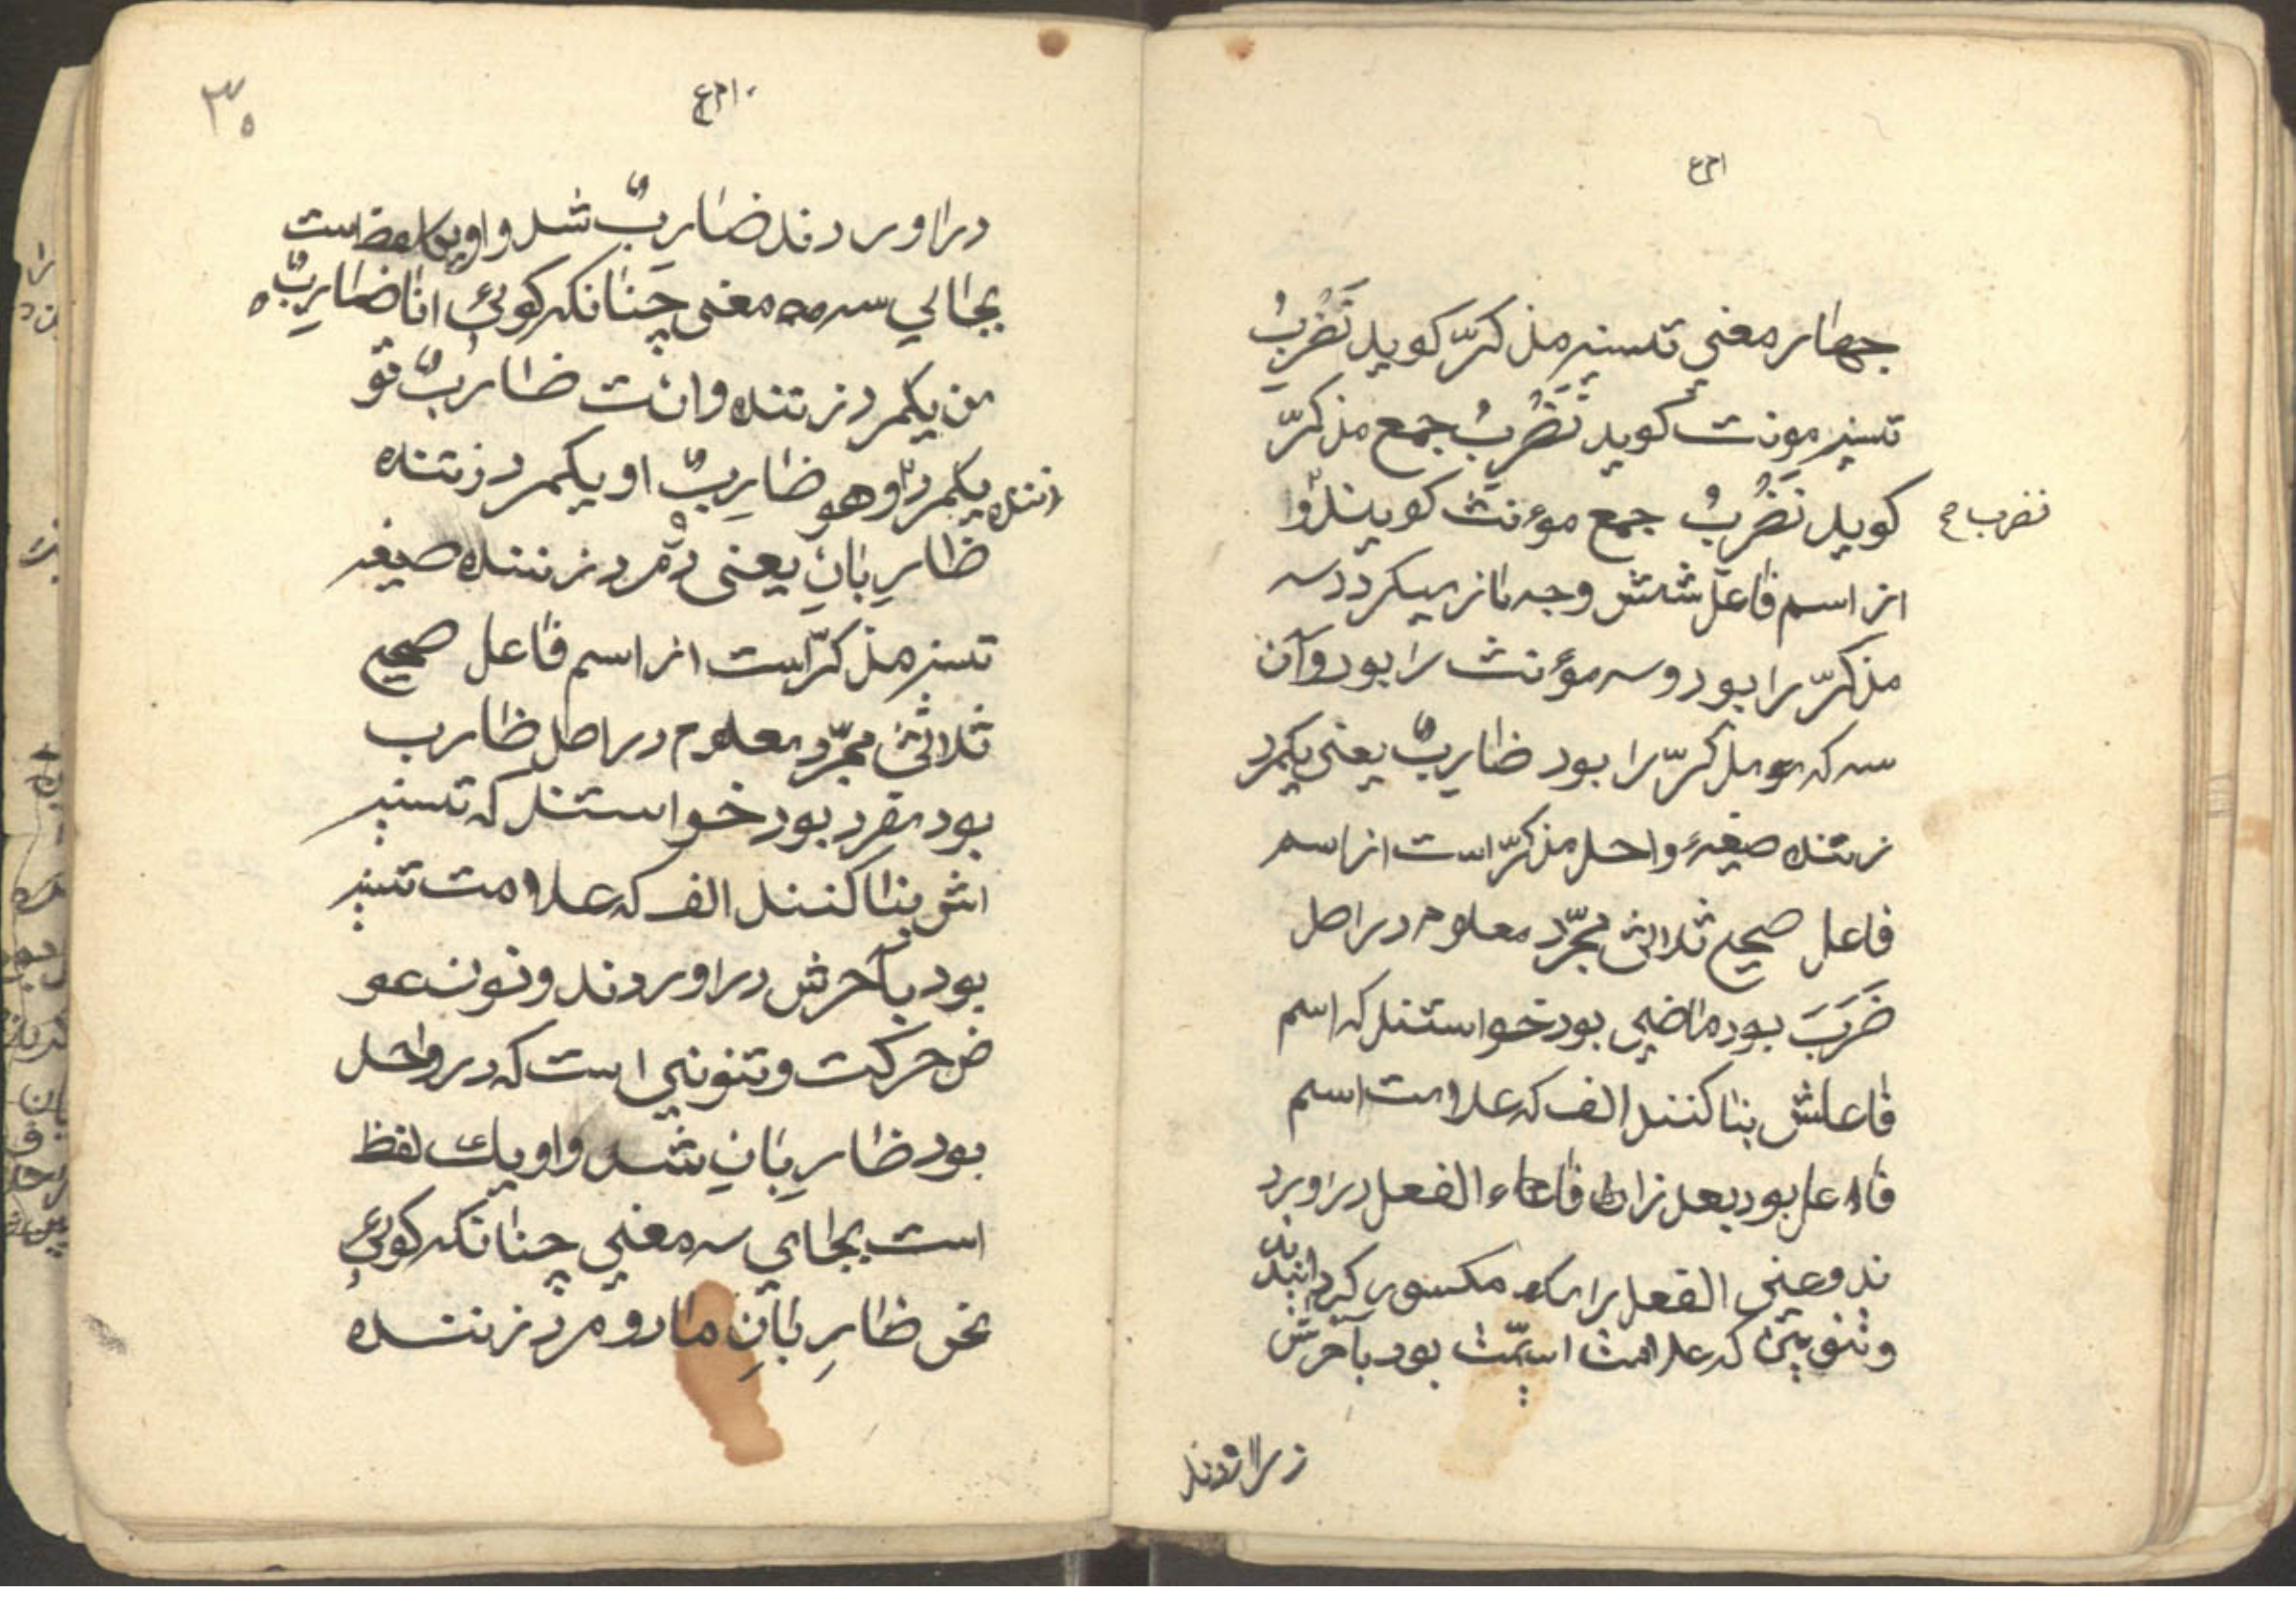 جهار معنی تسنیه مذکرّ کوید نَضْرِبُ
تسنیه مونت کوید نَضْرِبُ جمع مذکرّ
کوید نَضْرِبُ جمع موءنث کویند وا
نضرب
از اسم فاعل شش وجه باز میکردد سه
مذکرّ را بود و سه موءنث را بود و آن
سه که مذکرّ را بود ضاربٌ یعنی یکمرد
زننده صیغهٔ واحد مذکرّ است از اسم
فاعل صحیح ثلاثی مجرّد معلوم در اصل
ضَرَبَ بود ماضی بود خواستند که اسم
فاعلش بنا کنند الف که علامت اسم
فاعل بود بعد از فاء الفعل در اورد
ند و عینی الفعل را مکسور کردانیدند
و تنوینی که علامت اسمیّت بود بآخرش
در اوردند
۳۵
در اوردند ضاربٌ شد و او یک لفظ است
بجای سه معنی چنانکه کوئی انا ضاربٌ
من یکمرد زننده و انت ضاربٌ تو
یکمرد زننده و هو ضاربٌ او یکمرد زننده
ضاربانِ یعنی دو مرد زننده صیغه
تسنیه مذکرّ است از اسم فاعل صحیح
ثلاثی مجرّد معلوم در اصل ضارب
بود مفرد بود خواستند که تسنیه
اش بنا کنند الف که علامت تسنیه
بود بآخرش در اوردند و نون عو
ض حرکت و تنونی است که در واحد
بود ضاربانِ شد و او یک لفظ
است بجای سه معنی چنانکه کوئی
نحن ضاربانِ ما دو مرد زننده